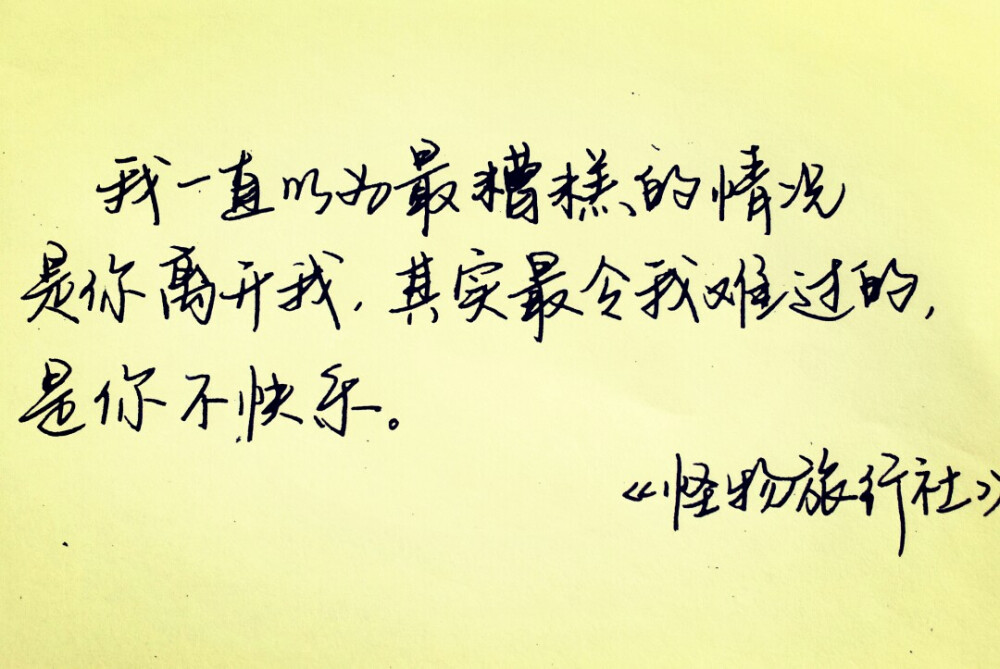 我一直以为最糟糕的情况
是你离开我,其实最令我难过的,
是你不快乐。
《怪物旅行社》